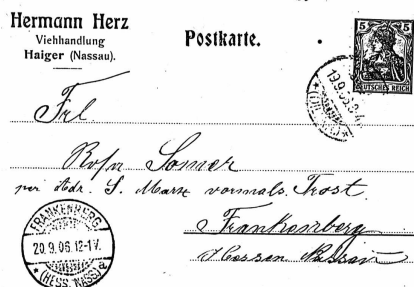 Hermann Herz
Viehhandlung
Haiger (Nassau).
Postkarte.
5 5
DEUTSCHES REICH
19.9.06.
Frl
Rosa Somer
per Adr. S. Marx vormals Trost.
Frankenberg
Hessen Nassau
FRANKENBERG
20.9.06.12-1V.
* (HESS. NASS) a